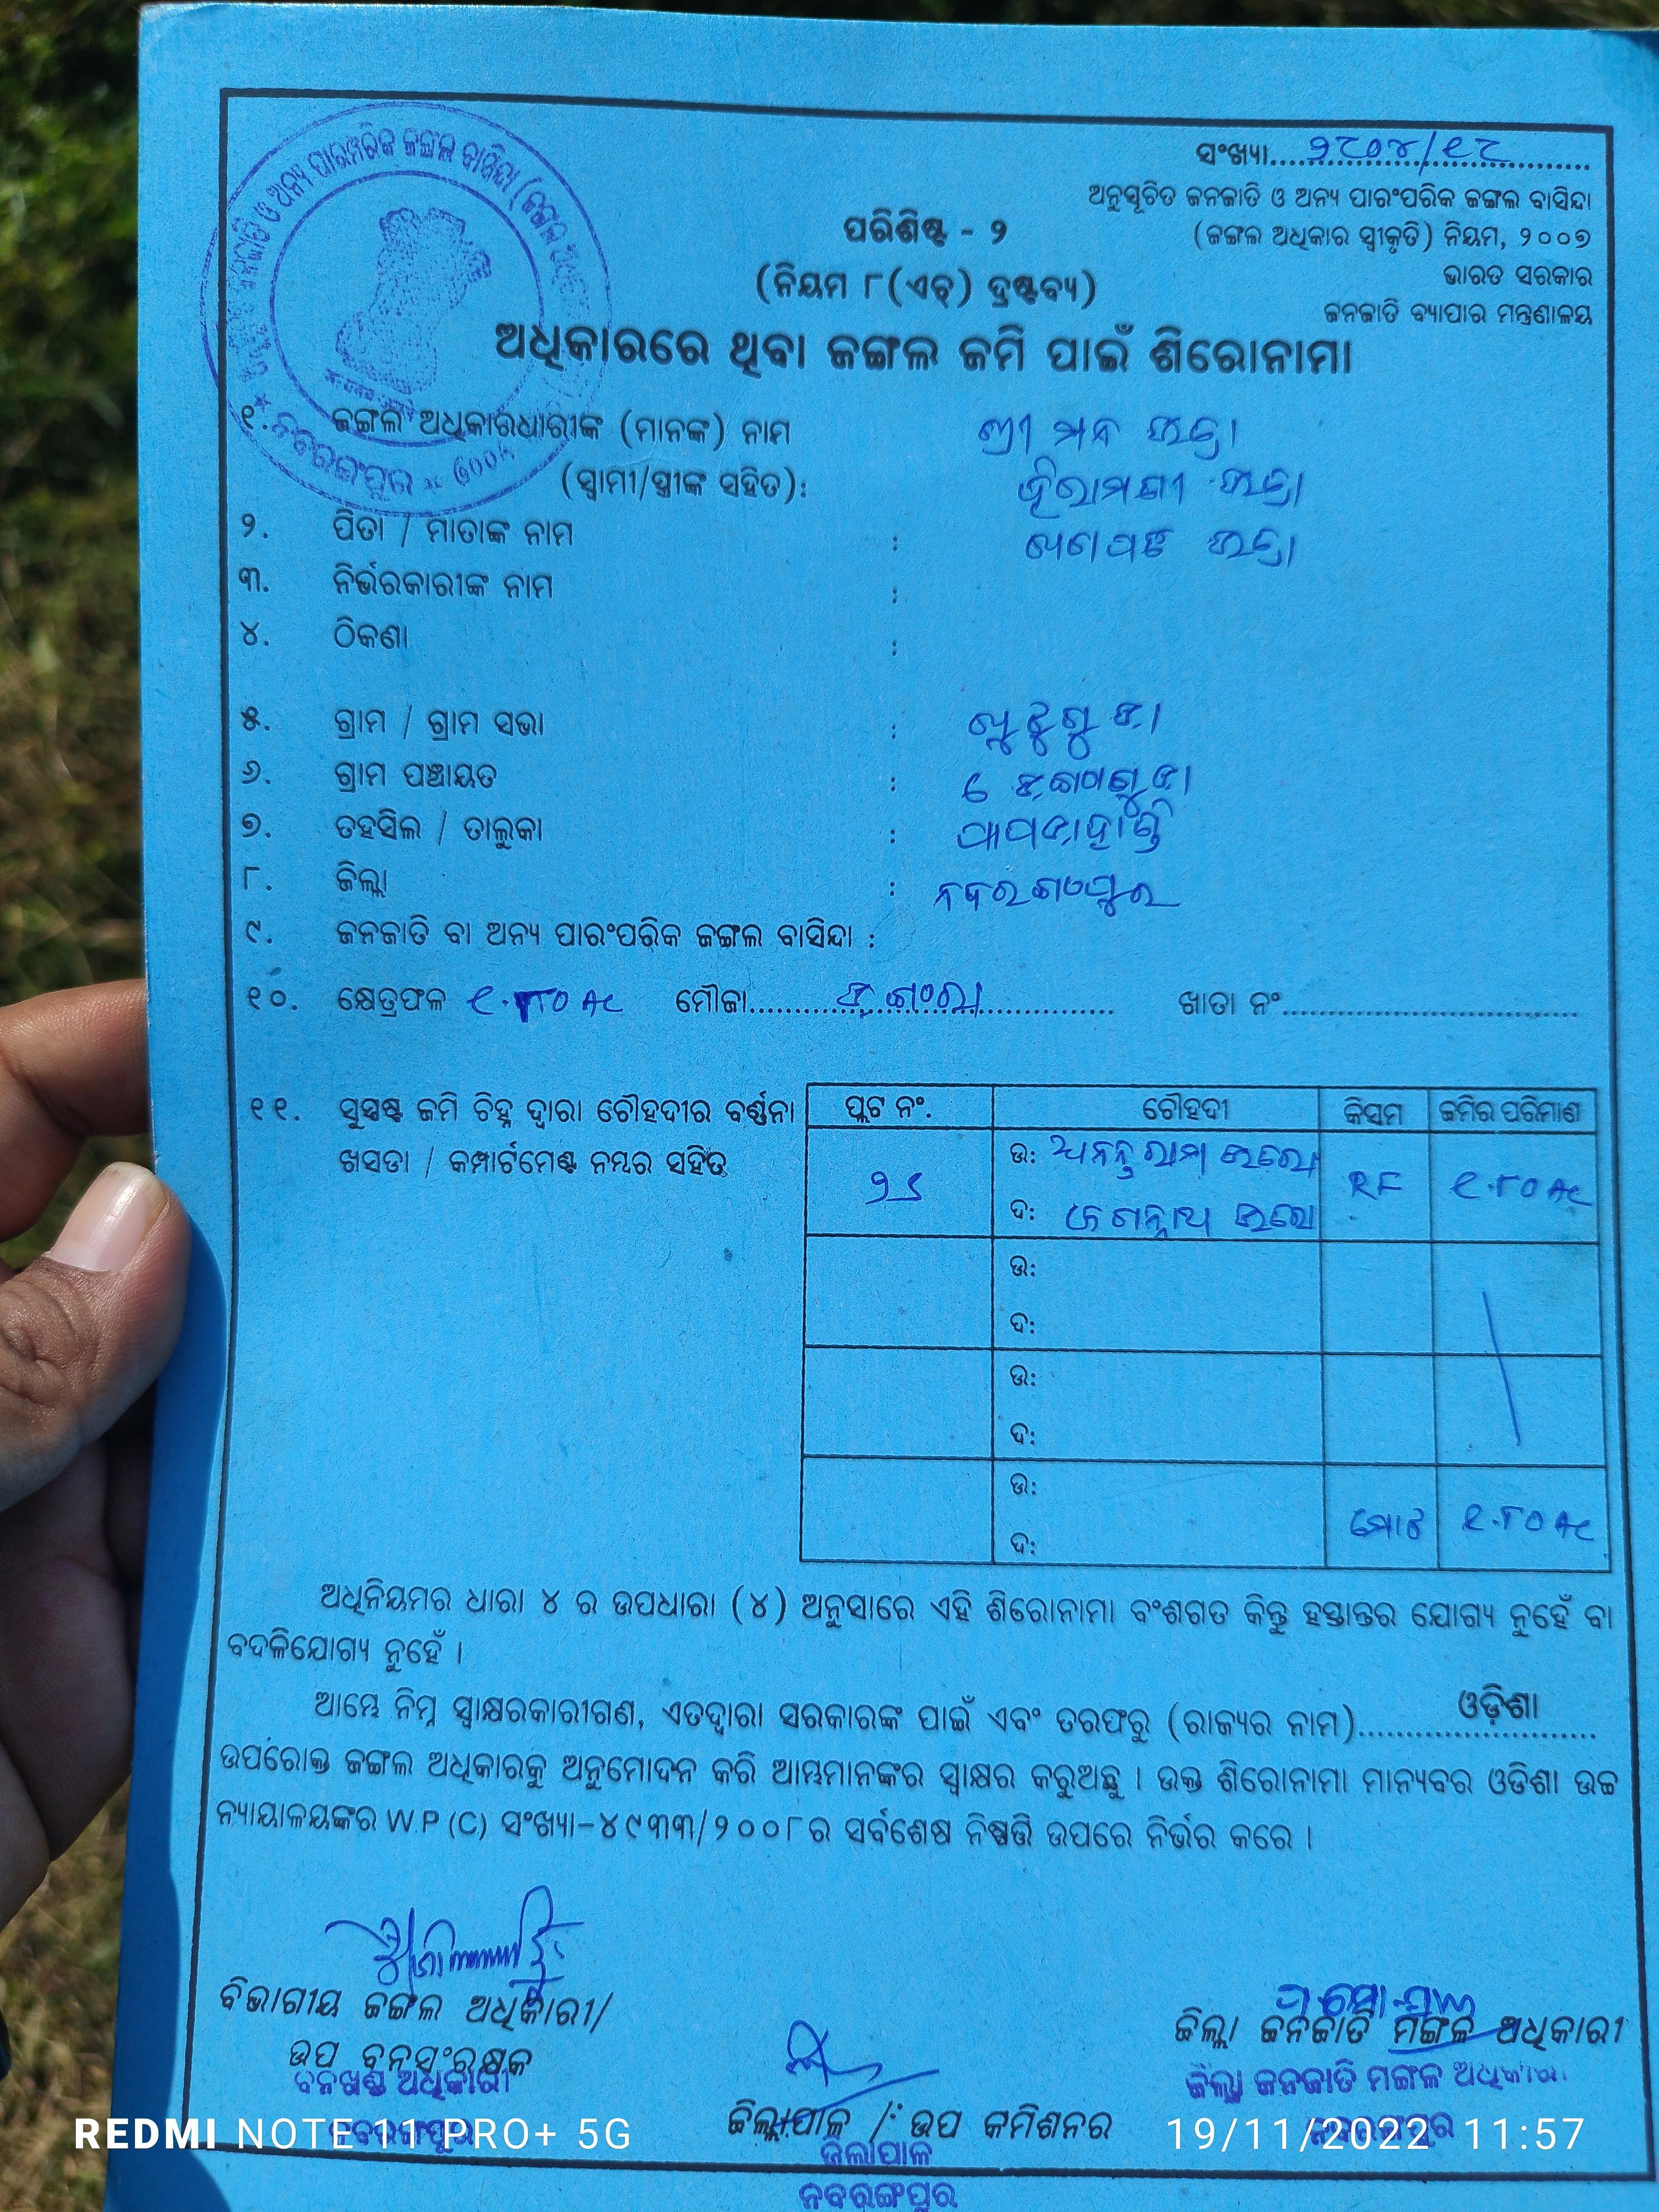 ସଂଖ୍ୟା..... ୨୮୦୪/୧୮
ଅନୁସୂଚିତ ଜନଜାତି ଓ ଅନ୍ୟ ପାରଂପରିକ ଜଙ୍ଗଲ ବାସିନ୍ଦା
(ଜଙ୍ଗଲ ଅଧିକାର ସ୍ୱୀକୃତି) ନିୟମ, ୨୦୦୭
ଭାରତ ସରକାର
ଜନଜାତି ବ୍ୟାପାର ମନ୍ତ୍ରଣାଳୟ
ପରିଶିଷ୍ଟ - ୨
(ନିୟମ ୮(ଏଚ୍) ଦ୍ରଷ୍ଟବ୍ୟ)
ଅଧିକାରରେ ଥିବା ଜଙ୍ଗଲ ଜମି ପାଇଁ ଶିରୋନାମା
ଜନଜାତି ଓ ଅନ୍ୟ ପାରମ୍ପରିକ ଜଙ୍ଗଲ ବାସିନ୍ଦା (ଜଙ୍ଗଲ
ନବରଙ୍ଗପୁର
୧. ଜଙ୍ଗଲ ଅଧିକାରଧାରୀଙ୍କ (ମାନଙ୍କ) ନାମ ଶ୍ରୀ
(ସ୍ୱାମୀ/ସ୍ତ୍ରୀଙ୍କ ସହିତ): ହିରାମଣୀ
୨. ପିତା / ମାତାଙ୍କ ନାମ :
୩. ନିର୍ଭରକାରୀଙ୍କ ନାମ :
୪. ଠିକଣା :
୫. ଗ୍ରାମ / ଗ୍ରାମ ସଭା :
୬. ଗ୍ରାମ ପଞ୍ଚାୟତ :
୭. ତହସିଲ / ତାଲୁକା : ପାପଡ଼ାହାଣ୍ଡି
୮. ଜିଲ୍ଲା : ନବରଙ୍ଗପୁର
୯. ଜନଜାତି ବା ଅନ୍ୟ ପାରଂପରିକ ଜଙ୍ଗଲ ବାସିନ୍ଦା :
୧୦. କ୍ଷେତ୍ରଫଳ ୧.୮୦ Ac ମୌଜା..... ଖାତା ନଂ.....
୧୧. ସୁସ୍ପଷ୍ଟ ଜମି ଚିହ୍ନ ଦ୍ୱାରା ଚୌହଦୀର ବର୍ଣ୍ଣନା
ଖସଡା / କମ୍ପାର୍ଟମେଣ୍ଟ ନମ୍ବର ସହିତ
ପ୍ଲଟ ନଂ. ଚୌହଦୀ କିସମ ଜମିର ପରିମାଣ
ଉ: ଅନନ୍ତରାମ
RF ୧.୮୦ Ac
ଦ: ଜଗନ୍ନାଥ
ଉ:
ଦ:
ଉ:
ଦ:
ଉ:
ମୋଟ ୧.୮୦ Ac
ଦ:
ଅଧିନିୟମର ଧାରା ୪ ର ଉପଧାରା (୪) ଅନୁସାରେ ଏହି ଶିରୋନାମା ବଂଶଗତ କିନ୍ତୁ ହସ୍ତାନ୍ତର ଯୋଗ୍ୟ ନୁହେଁ ବା
ବଦଳିଯୋଗ୍ୟ ନୁହେଁ ।
ଆମ୍ଭେ ନିମ୍ନ ସ୍ୱାକ୍ଷରକାରୀଗଣ, ଏତଦ୍ୱାରା ସରକାରଙ୍କ ପାଇଁ ଏବଂ ତରଫରୁ (ରାଜ୍ୟର ନାମ)..... ଓଡ଼ିଶା
ଉପରୋକ୍ତ ଜଙ୍ଗଲ ଅଧିକାରକୁ ଅନୁମୋଦନ କରି ଆମ୍ଭମାନଙ୍କର ସ୍ୱାକ୍ଷର କରୁଅଛୁ । ଉକ୍ତ ଶିରୋନାମା ମାନ୍ୟବର ଓଡିଶା ଉଚ୍ଚ
ନ୍ୟାୟାଳୟଙ୍କର W.P (C) ସଂଖ୍ୟା-୪୯୩୩/୨୦୦୮ର ସର୍ବଶେଷ ନିଷ୍ପତ୍ତି ଉପରେ ନିର୍ଭର କରେ ।
ବିଭାଗୀୟ ଜଙ୍ଗଲ ଅଧିକାରୀ/
ଉପ ବନସଂରକ୍ଷକ
ବନଖଣ୍ଡ ଅଧିକାରୀ
ନବରଙ୍ଗପୁର
ଜିଲ୍ଲାପାଳ / ଉପ କମିଶନର
ଜିଲାପାଳ
ନବରଙ୍ଗପୁର
ଜିଲ୍ଲା ଜନଜାତି ମଙ୍ଗଳ ଅଧିକାରୀ
ଜିଲ୍ଲା ଜନଜାତି ମଙ୍ଗଳ ଅଧିକାରୀ
ନବରଙ୍ଗପୁର
REDMI NOTE 11 PRO+ 5G
19/11/2022 11:57